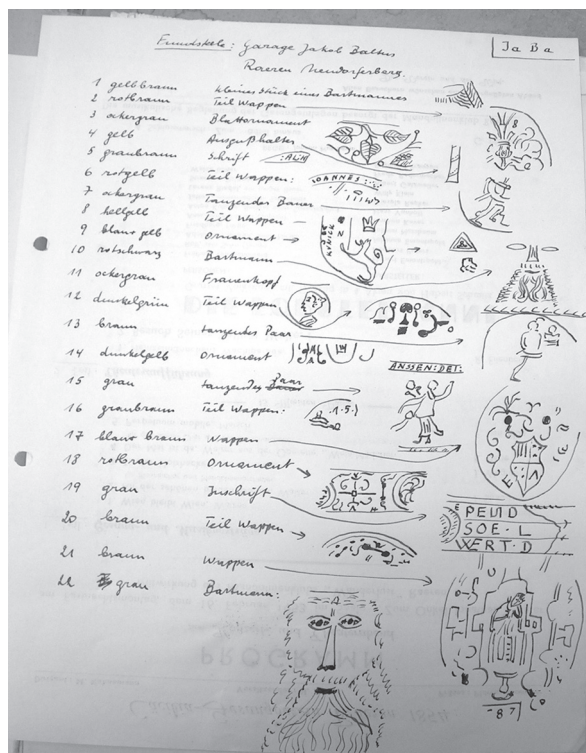 Fundstelle: Garage Jakob Baltus
Ja Ba
Raeren Neudorferberg.
1 gelbbraun kleines Stück eines Bartmannes
2 rotbraun Teil Wappen
3 ockergrau Blattornament
4 gelb Ausgußhalter
5 graubraun Schrift :ALIA
6 rotgelb Teil Wappen: IOANNES:
7 ockergrau Tanzender Bauer
8 hellgelb Teil Wappen
9 blau gelb Ornament
10 rotschwarz Bartmann
11 ockergrau Frauenkopf
12 dunkelgrün Teil Wappen
13 braun tanzendes Paar
14 dunkelgelb Ornament
ANSSEN:DET:
15 grau tanzendes Paar
16 graubraun Teil Wappen: .1.5.)
17 blau braun Wappen
18 rotbraun Ornament
19 grau Inschrift
PEUD
SOE.L
WERT.D
20 braun Teil Wappen
21 braun Wappen
22 grau Bartmann:
87
PROGRAMM